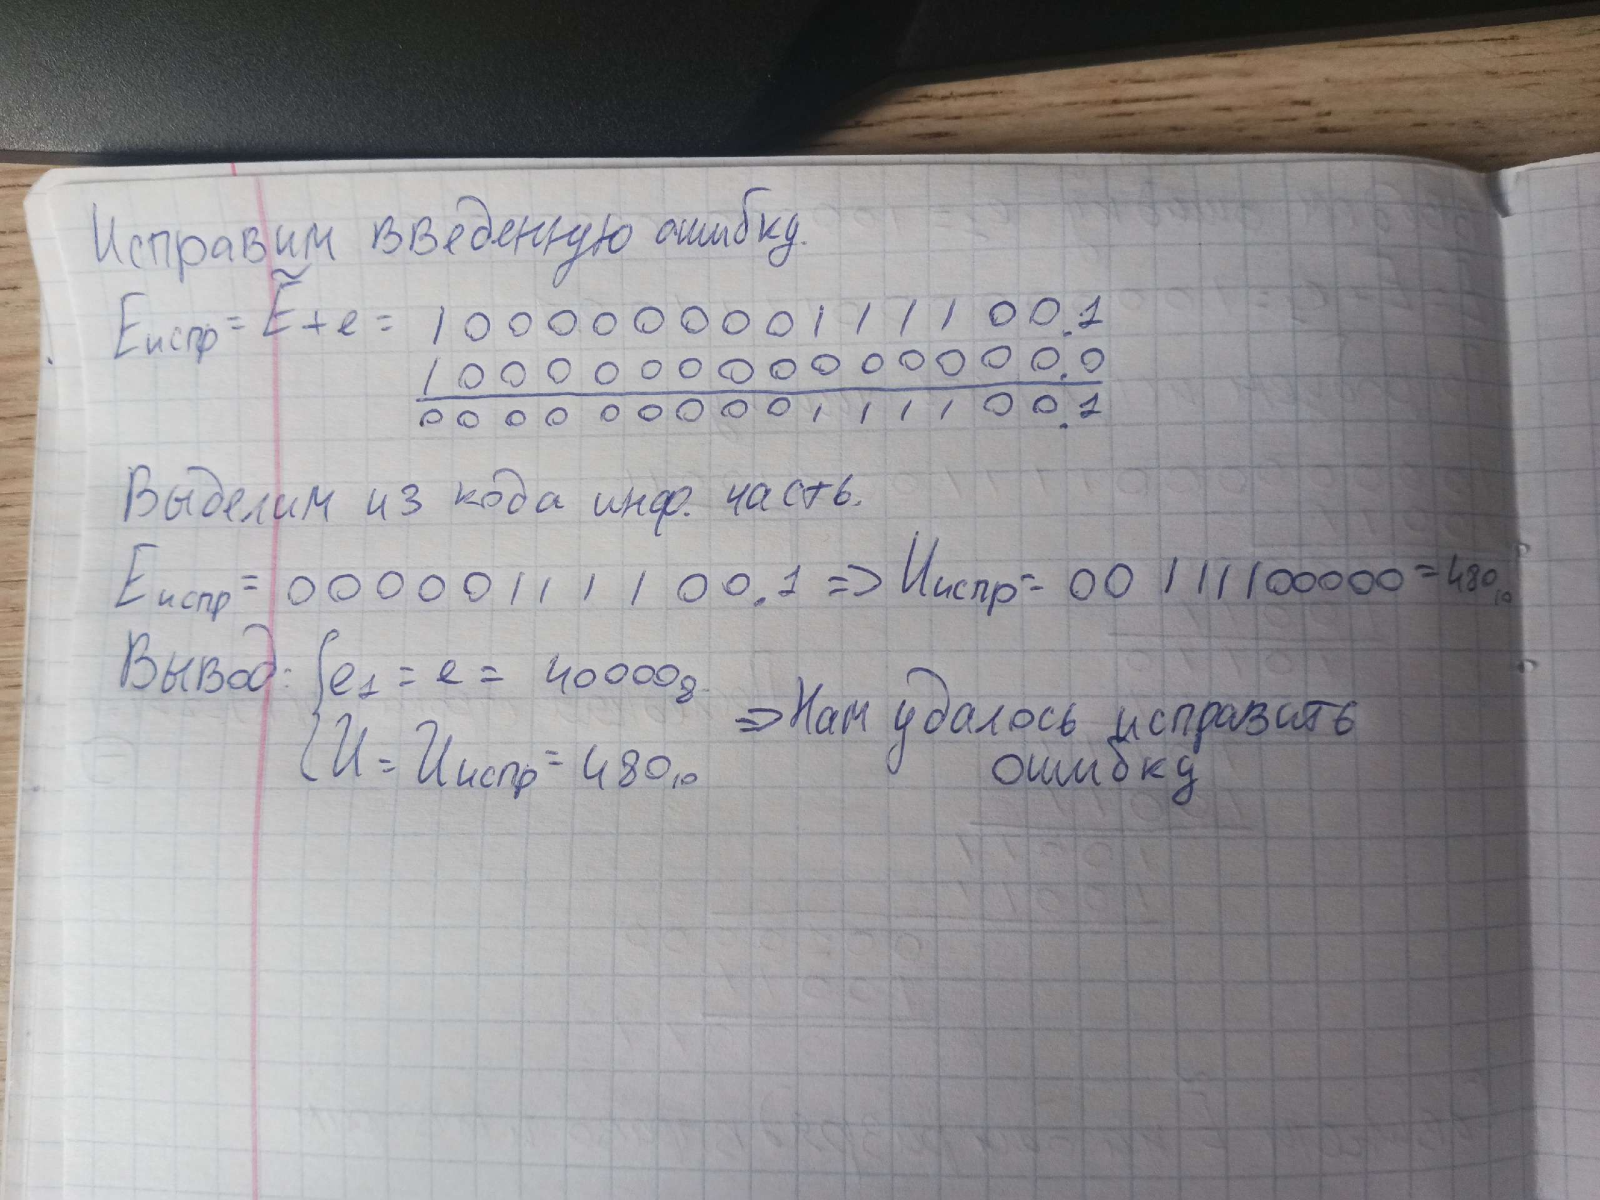 Исправим введенную ошибку.
Eиспр = Ẽ + e = 1 0 0 0 0 0 0 0 0 1 1 1 1 0 0.1
1 0 0 0 0 0 0 0 0 0 0 0 0 0 0.0
0 0 0 0 0 0 0 0 0 1 1 1 1 0 0.1
Выделим из кода инф. часть.
Eиспр = 0 0 0 0 0 1 1 1 1 0 0.1 => Uиспр = 00 111100000 = 480₁₀
Вывод: { e₁ = e = 40000₈
U = Uиспр = 480₁₀
=> Нам удалось исправить
ошибку